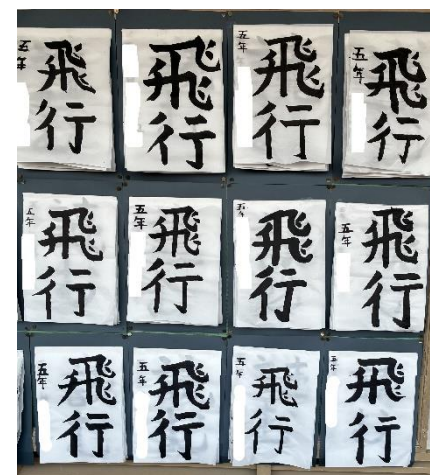 五年
飛行
五年
飛行
五年
飛行
五年
飛行
五年
飛行
五年
飛行
五年
飛行
五年
飛行
五年
飛行
五年
飛行
五年
飛行
五年
飛行